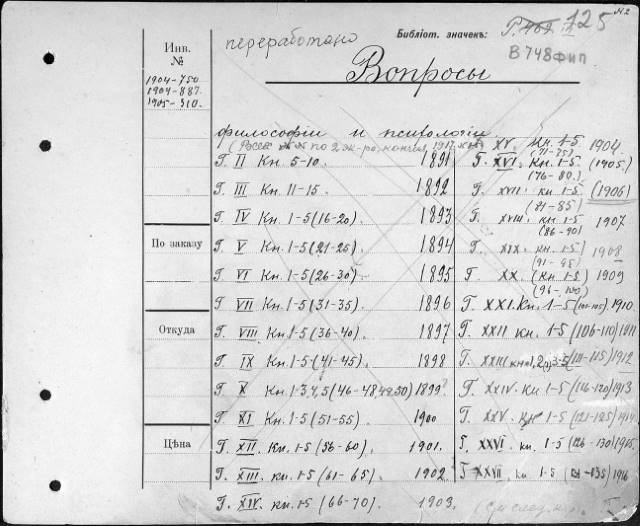 №2
Библіот. значекъ:
125
В748фип
переработано
Инв.
№
1904-750
1904-887.
1905-310.
По заказу
Откуда
Цѣна
Вопросы
философіи и психологіи.
по 2 экз. кончая 1917
Г. II Кн. 5-10. 1891
Г. III Кн. 11-15. 1892
Г. IV Кн. 1-5 (16-20). 1893
Г. V Кн. 1-5 (21-25). 1894
Г. VI Кн. 1-5 (26-30). 1895
Г. VII Кн. 1-5 (31-35). 1896
Г. VIII Кн. 1-5 (36-40). 1897
Г. IX Кн. 1-5 (41-45). 1898
Г. X Кн. 1-3,4,5 (46-48,49,50) 1899
Г. XI Кн. 1-5 (51-55). 1900
Г. XII Кн. 1-5 (56-60). 1901.
Г. XIII. кн. 1-5 (61-65). 1902
Г. XIV. кн. 1-5 (66-70). 1903.
Г. XV. Кн. 1-5 1904
(71-75)
Г. XVI. Кн. 1-5 (1905)
(76-80)
Г. XVII. кн 1-5 (1906)
(81-85)
Г. XVIII. кн. 1-5 1907
(86-90)
Г. XIX. кн. 1-5 1908
(91-95)
Г. XX. (кн. 1-5) 1909
(96-100)
Г. XXI. Кн. 1-5 (101-105) 1910.
Г. XXII кн. 1-5 (106-110) 1911
Г. XXIII кн. 1,2 3-5 (111-115) 1912
Г. XXIV. Кн 1-5 (116-120) 1913
Г. XXV. Кн 1-5 (121-125) 1914
Г. XXVI. кн. 1-5 (126-130) 1915
Г. XXVII. кн 1-5 (131-135) 1916
(См след.